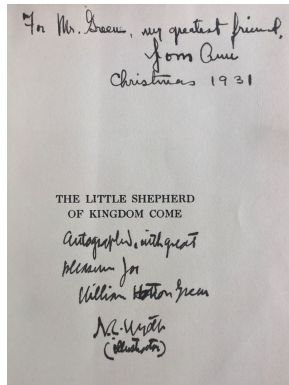 For Mr. Green, my greatest friend,
from Ann
Christmas 1931
THE LITTLE SHEPHERD
OF KINGDOM COME
Autographed, with great
pleasure for
William Green
N.C. Wyeth
(illustrator)